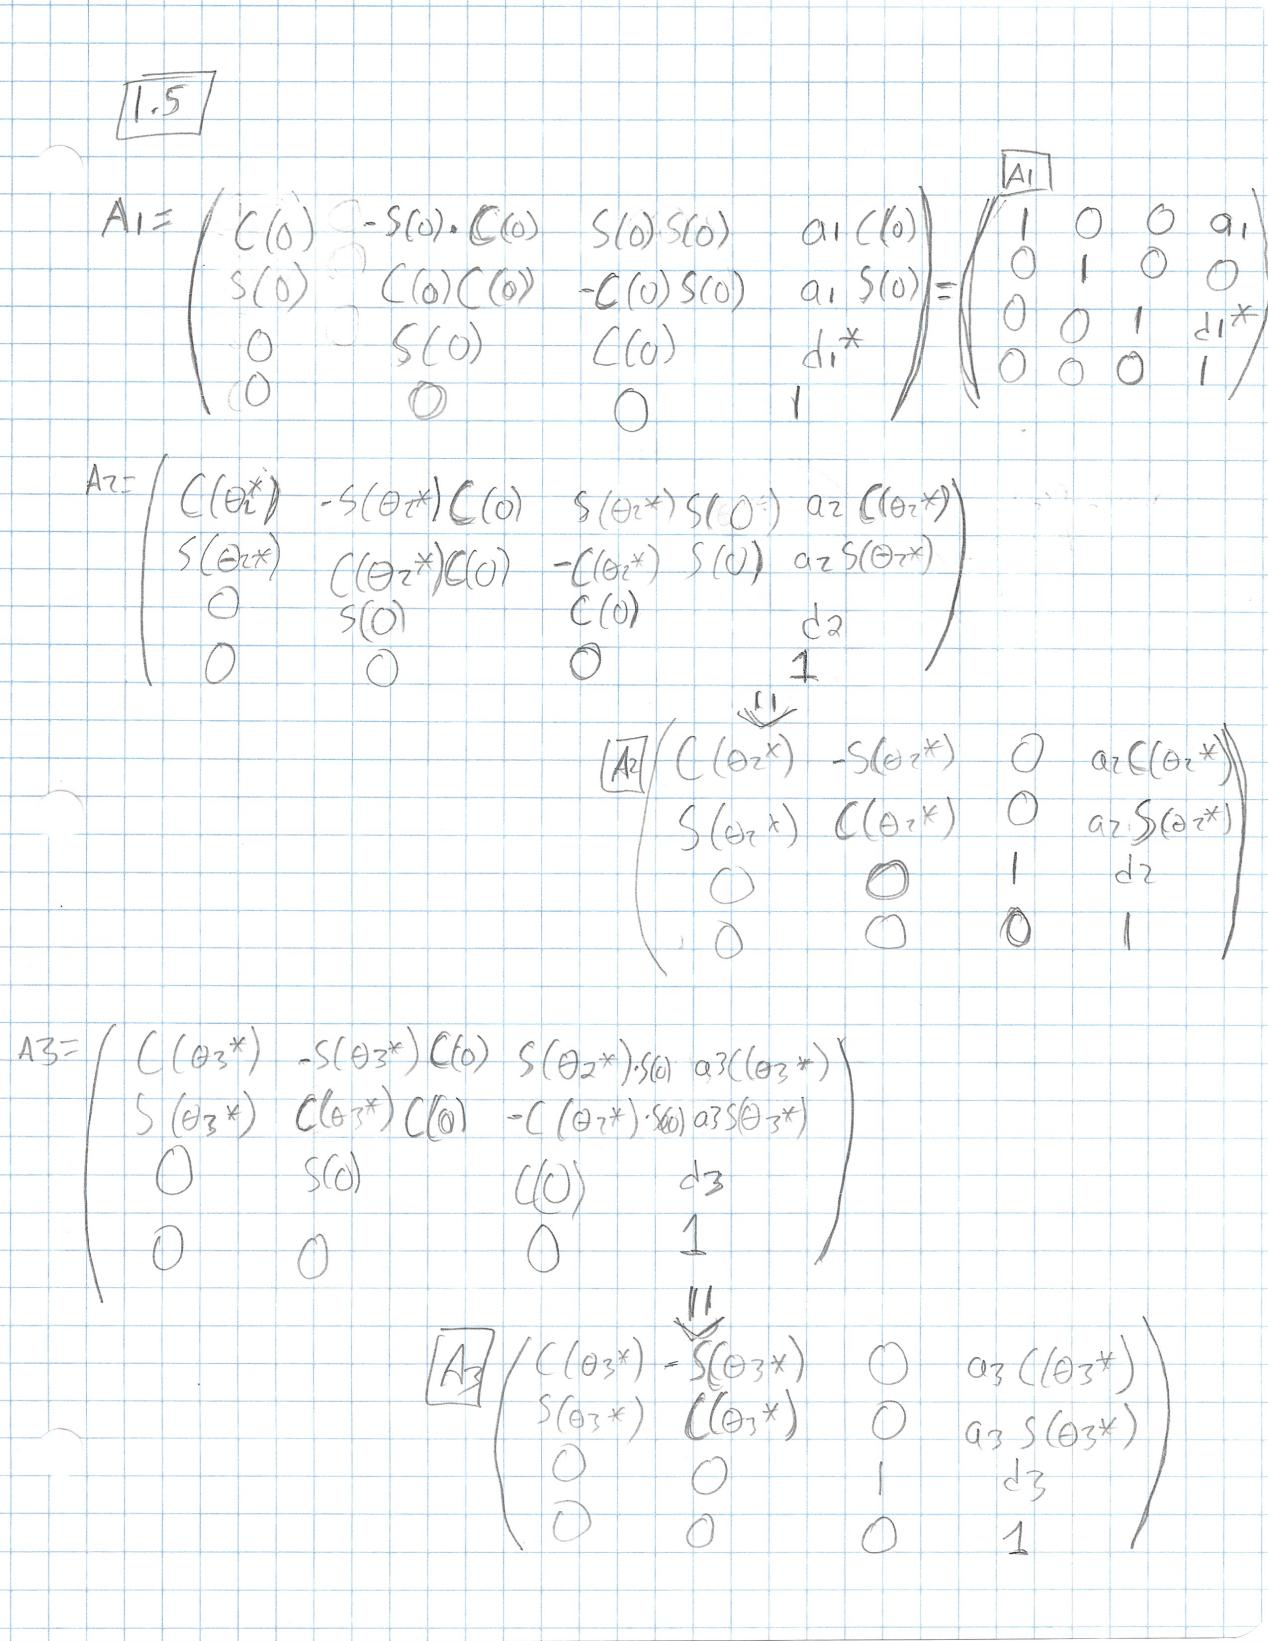 1.5
A1
A1= C(0) -S(0)·C(0) S(0)·S(0) a1 C(0) = 1 0 0 a1
S(0) C(0)C(0) -C(0)S(0) a1 S(0) 0 1 0 0
0 S(0) C(0) d1* 0 0 1 d1*
0 0 0 1 0 0 0 1
A2= C(θ2*) -S(θ2*)C(0) S(θ2*)S(0) a2 C(θ2*)
S(θ2*) C(θ2*)C(0) -C(θ2*) S(0) a2 S(θ2*)
0 S(0) C(0) d2
0 0 0 1
A2 C(θ2*) -S(θ2*) 0 a2 C(θ2*)
S(θ2*) C(θ2*) 0 a2 S(θ2*)
0 0 1 d2
0 0 0 1
A3= C(θ3*) -S(θ3*)C(0) S(θ2*)·S(0) a3C(θ3*)
S(θ3*) C(θ3*)C(0) -C(θ2*)·S(0) a3S(θ3*)
0 S(0) C(0) d3
0 0 0 1
A3 C(θ3*) -S(θ3*) 0 a3 C(θ3*)
S(θ3*) C(θ3*) 0 a3 S(θ3*)
0 0 1 d3
0 0 0 1